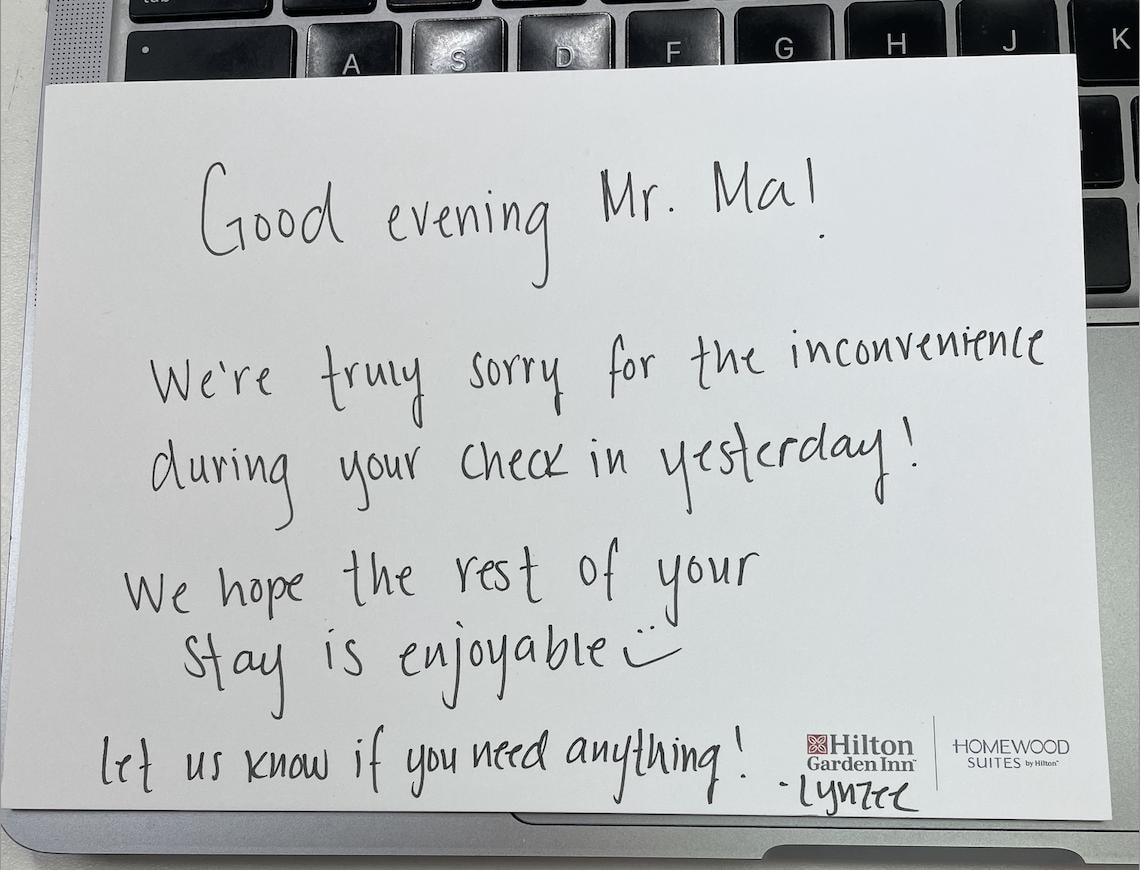 tab
A S D F G H J K
Good evening Mr. Ma!
We're truly sorry for the inconvenience
during your check in yesterday!
We hope the rest of your
stay is enjoyable
let us know if you need anything!
Hilton
Garden Inn
HOMEWOOD
SUITES by Hilton
-Lynzee